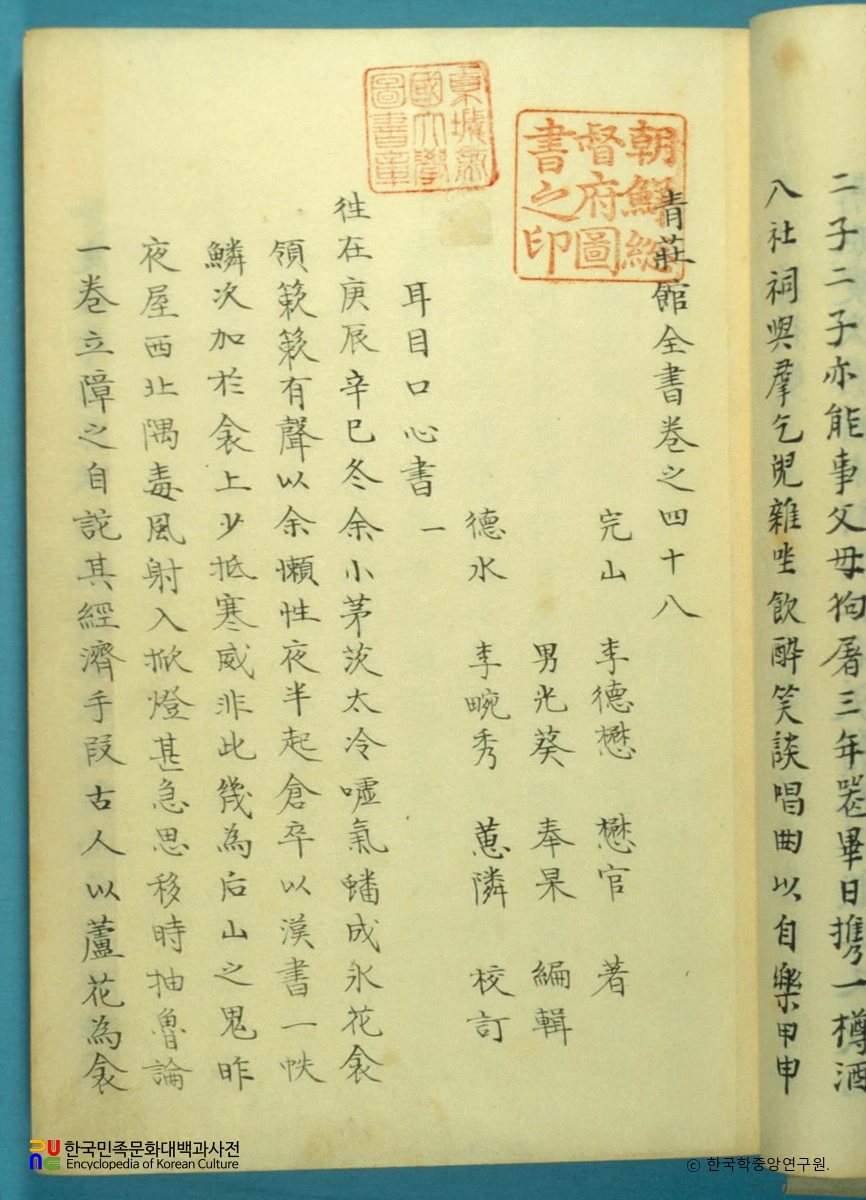 二子二子亦能事父母狗屠三年喪畢日携一樽酒
入社祠與羣乞兒雜坐飮醉笑談唱曲以自樂甲申
朝鮮總
督府圖
書之印
京城帝
國大學
圖書章
青莊館全書卷之四十八
完山 李德懋 懋官 著
男光葵 奉杲 編輯
德水 李畹秀 蕙隣 校訂
耳目口心書 一
徃在庚辰辛巳冬余小茅茨太冷噓氣蟠成氷花衾
領簌簌有聲以余懶性夜半起倉卒以漢書一帙
鱗次加於衾上少抵寒威非此幾為后山之鬼昨
夜屋西北隅毒風射入掀燈甚急思移時抽魯論
一卷立障之自詑其經濟手段古人以蘆花為衾
한국민족문화대백과사전
Encyclopedia of Korean Culture
© 한국학중앙연구원.